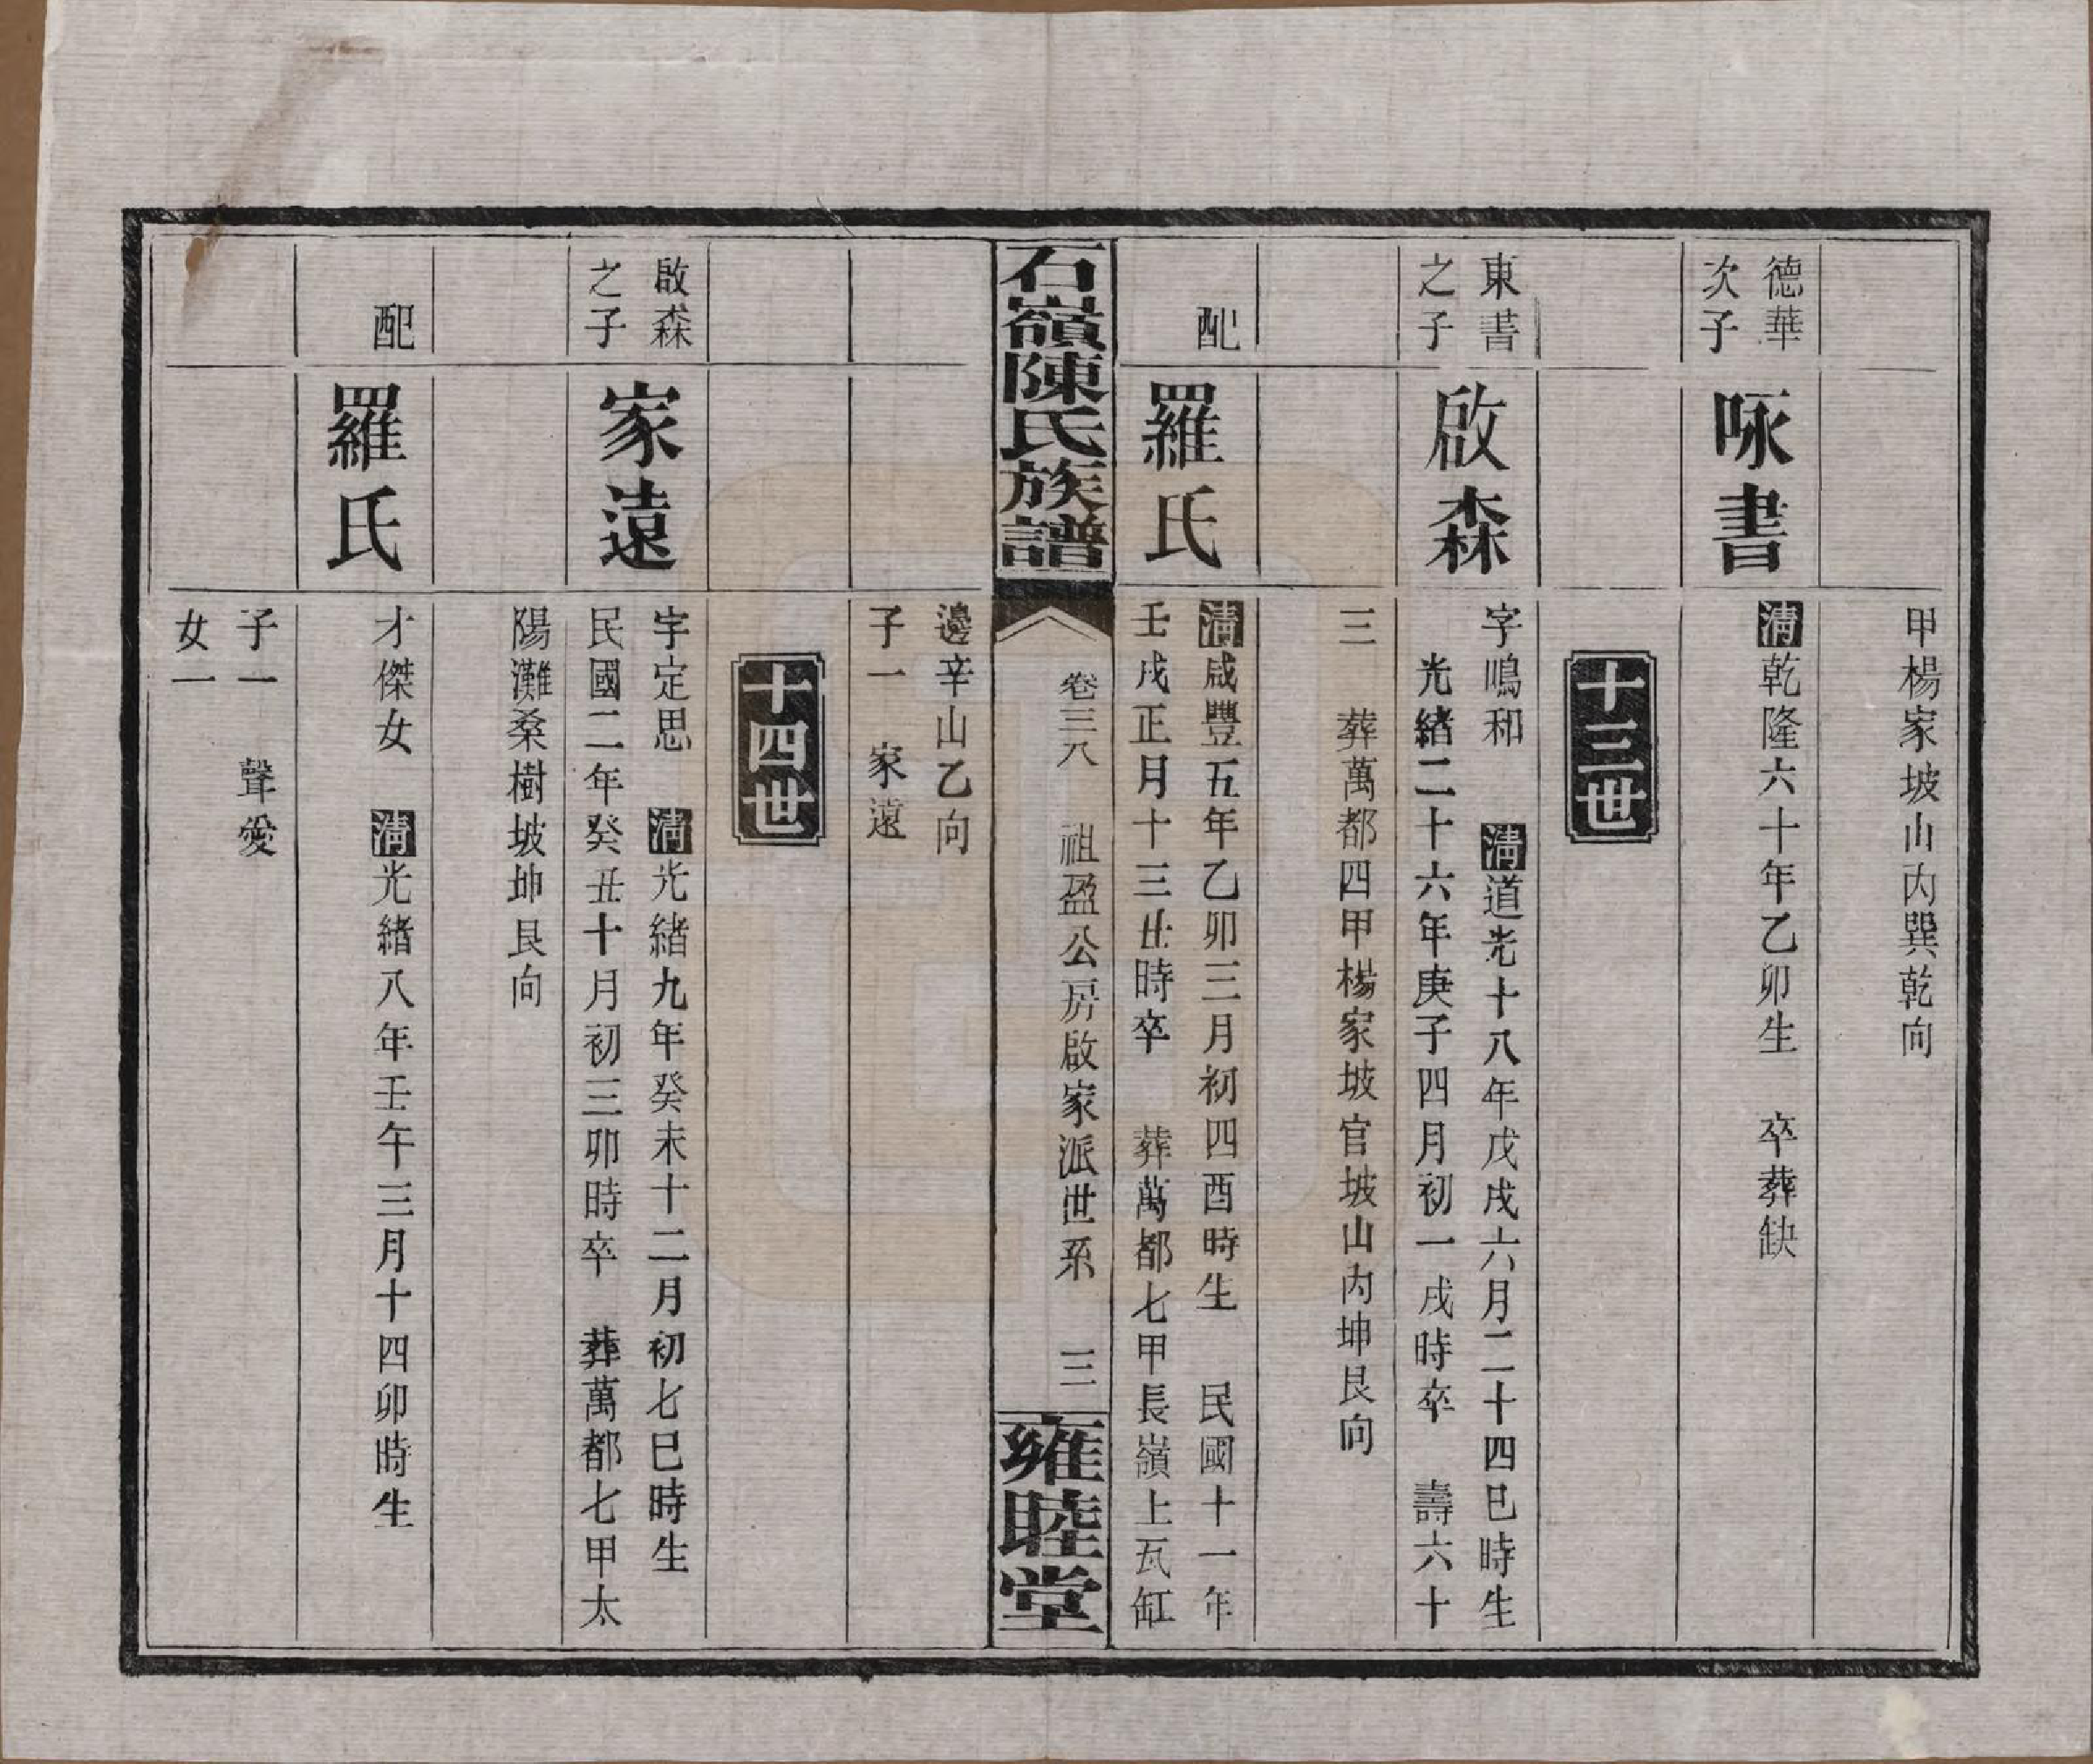 甲楊家坡山內巽乾向
德華
次子
咏書
清乾隆六十年乙卯生　卒葬缺
十三世
東書
之子
啟森
字鳴和　清道光十八年戊戌六月二十四巳時生
光緒二十六年庚子四月初一戌時卒　壽六十
三　葬萬都四甲楊家坡官坡山內坤艮向
配
羅氏
清咸豐五年乙卯三月初四酉時生　民國十一年
壬戌正月十三丑時卒　葬萬都七甲長嶺上瓦缸
石嶺陳氏族譜
卷三八　祖盈公房啟家派世系　三
雍睦堂
邊辛山乙向
子一　家遠
十四世
啟森
之子
家遠
字定思　清光緒九年癸未十二月初七巳時生
民國二年癸丑十月初三卯時卒　葬萬都七甲太
陽灘桑樹坡坤艮向
配
羅氏
才傑女　清光緒八年壬午三月十四卯時生
子一　聲愛
女一